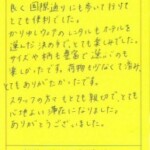 良く国際通りにも歩いて行けて
とても便利でした。
かりゆしウェアのレンタルもホテルを
選んだ決め手で、とても楽しみでした。
サイズや柄も豊富で選ぶのも
楽しかったです。荷物も少なくて済み、
とてもありがたかったです。
スタッフの方々もとても親切で、とても
心地よい滞在になりました。
ありがとうございました。